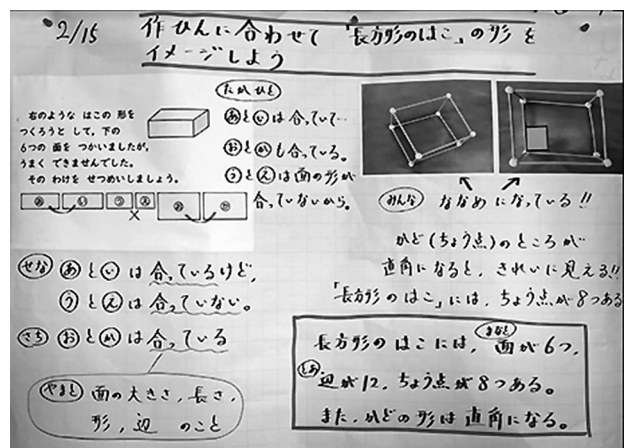 2/15
作ひんに合わせて「長方形のはこ」の形を
イメージしよう
右のような はこの 形を
つくろうと して、下の
6つの 面を つかいましたが、
うまく できませんでした。
その わけを せつめいしましょう。
あ い う え お か
たかひと
あといは合っていて
おとかも合っている。
うとえは面の形が
合っていないから。
みんな ななめになっている!!
かど(ちょう点)のところが
直角になると、きれいに見える!!
「長方形のはこ」には、ちょう点が8つある
せな あといは合っているけど、
うとえは合っていない。
さち おとかは合っている
やまと 面の大きさ、長さ、
形、辺 のこと
まなと
長方形のはこには、面が6つ、
辺が12、ちょう点が8つある。
また、かどの形は直角になる。